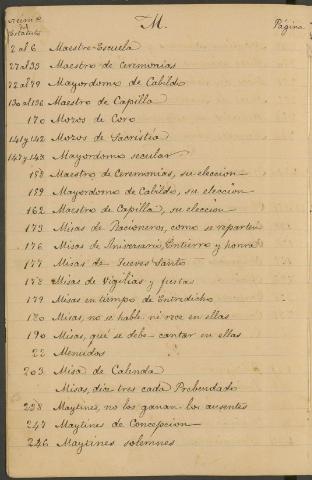 Num.º
del
Estatuto
M.
Página
2 al 6 Maestre-Escuela
27 al 33 Maestro de Ceremonias
72 al 79 Mayordomo de Cabildo
130 al 136 Maestro de Capilla
170 Mozos de Coro
141 y 142 Mozos de Sacristía
147 y 148 Mayordomo secular
158 Maestro de Ceremonias, su eleccion
159 Mayordomo de Cabildo, su eleccion
162 Maestro de Capilla, su eleccion
173 Misas de Racioneros, como se reparten
176 Misas de Aniversario, Entierro y honra
177 Misas de Jueves Santo
178 Misas de Vigilias y fiestas
179 Misas en tiempo de Entredicho
180 Misas, no se hable ni rece en ellas
190 Misas, qué se debe cantar en ellas
22 Menudos
203 Misa de Calenda
Misas, dice tres cada Prebendado
228 Maytines, no los ganan los ausentes
247 Maytines de Concepcion
246 Maytines solemnes